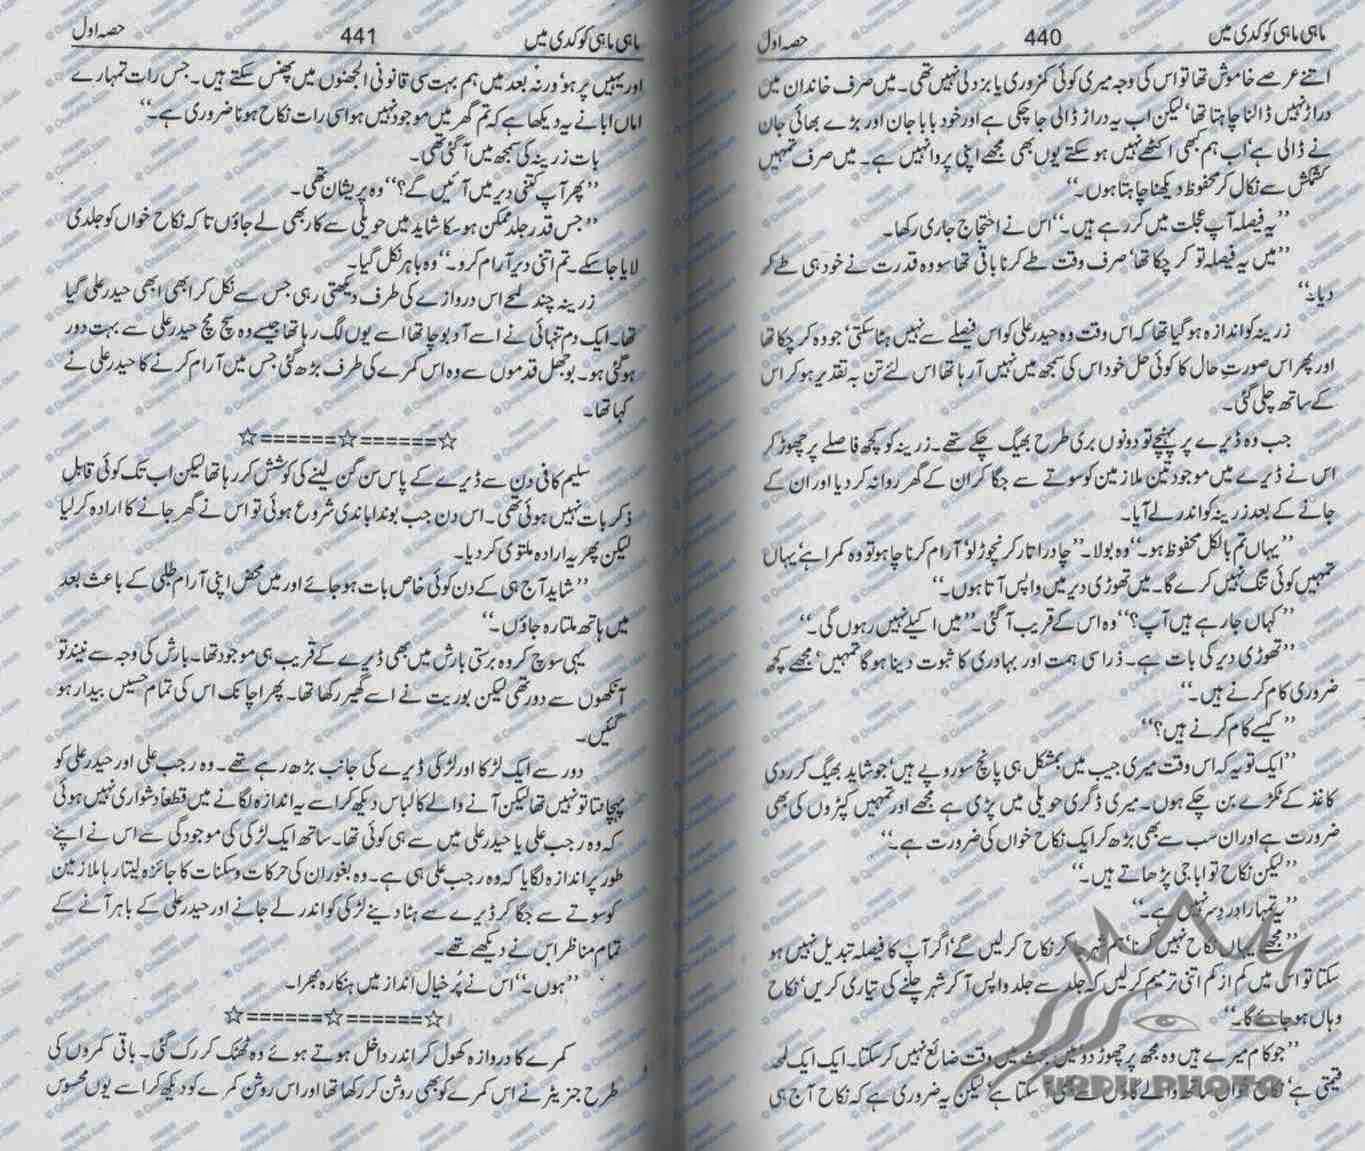 ماہی ماہی کوکدی میں 440 حصہ اول
اتنے عرصے خاموش تھا تو اس کی وجہ میری کوئی کمزوری یا بزدلی نہیں تھی۔ میں صرف خاندان میں
دراڑ نہیں ڈالنا چاہتا تھا‘ لیکن اب یہ دراڑ ڈالی جا چکی ہے اور خود بابا جان اور بڑے بھائی جان
نے ڈالی ہے‘ اب ہم کبھی اکٹھے نہیں ہو سکتے یوں بھی مجھے اپنی پروا نہیں ہے۔ میں صرف تمہیں
کشمکش سے نکال کر محفوظ دیکھنا چاہتا ہوں۔‘‘
’’یہ فیصلہ آپ عجلت میں کر رہے ہیں۔‘‘ اس نے احتجاج جاری رکھا۔
’’میں یہ فیصلہ تو کر چکا تھا‘ صرف وقت طے کرنا باقی تھا سو وہ قدرت نے خود ہی طے کر
دیا۔‘‘
زرینہ کو اندازہ ہو گیا تھا کہ اس وقت وہ حیدر علی کو اس فیصلے سے نہیں ہٹا سکتی‘ جو وہ کر چکا تھا
اور پھر اس صورتِ حال کا کوئی حل خود اس کی سمجھ میں نہیں آ رہا تھا اس لئے تن بہ تقدیر ہو کر اس
کے ساتھ چلی گئی۔
جب وہ ڈیرے پر پہنچے تو دونوں بری طرح بھیگ چکے تھے۔ زرینہ کو کچھ فاصلے پر چھوڑ کر
اس نے ڈیرے میں موجود تین ملازمین کو سوتے سے جگا کر ان کے گھر روانہ کر دیا اور ان کے
جانے کے بعد زرینہ کو اندر لے آیا۔
’’یہاں تم بالکل محفوظ ہو۔‘‘ وہ بولا۔ ’’چادر اتار کر نچوڑ لو‘ آرام کرنا چاہو تو وہ کمرا ہے‘ یہاں
تمہیں کوئی تنگ نہیں کرے گا۔ میں تھوڑی دیر میں واپس آتا ہوں۔‘‘
’’کہاں جا رہے ہیں آپ؟‘‘ وہ اس کے قریب آ گئی۔ ’’میں اکیلے نہیں رہوں گی۔‘‘
’’تھوڑی دیر کی بات ہے۔ ذرا سی ہمت اور بہادری کا ثبوت دینا ہو گا تمہیں‘ مجھے کچھ
ضروری کام کرنے ہیں۔‘‘
’’کیسے کام کرنے ہیں؟‘‘
’’ایک تو یہ کہ اس وقت میری جیب میں بمشکل ہی پانچ سو روپے ہیں‘ جو شاید بھیگ کر ردی
کاغذ کے ٹکڑے بن چکے ہوں۔ میری ڈگری حویلی میں پڑی ہے مجھے اور تمہیں کپڑوں کی بھی
ضرورت ہے اور ان سب سے بھی بڑھ کر ایک نکاح خواں کی ضرورت ہے۔‘‘
’’لیکن نکاح تو ابا جی پڑھاتے ہیں۔‘‘
’’یہ تمہارا دردِ سر نہیں ہے۔‘‘
’’مجھے یہاں نکاح نہیں کرنا‘ ہم شہر جا کر نکاح کر لیں گے‘ اگر آپ کا فیصلہ تبدیل نہیں ہو
سکتا تو اس میں کم از کم اتنی ترمیم کر لیں کہ جلد سے جلد واپس آ کر شہر چلنے کی تیاری کریں‘ نکاح
وہاں ہو جائے گا۔‘‘
’’جو کام میرے ہیں وہ مجھ پر چھوڑ دو‘ میں بحث میں وقت ضائع نہیں کر سکتا۔ ایک ایک لمحہ
قیمتی ہے‘ نکاح خواں ساتھ والے گاؤں سے بھی آ سکتا ہے‘ لیکن یہ ضروری ہے کہ نکاح آج ہی
URDU PHOTO
ماہی ماہی کوکدی میں 441 حصہ اول
اور یہیں پر ہو‘ ورنہ بعد میں ہم بہت سی قانونی الجھنوں میں پھنس سکتے ہیں۔ جس رات تمہارے
اماں ابا نے یہ دیکھا ہے کہ تم گھر میں موجود نہیں ہو اسی رات نکاح ہونا ضروری ہے۔‘‘
بات زرینہ کی سمجھ میں آ گئی تھی۔
’’پھر آپ کتنی دیر میں آئیں گے؟‘‘ وہ پریشان تھی۔
’’جس قدر جلد ممکن ہو سکا شاید میں حویلی سے کار بھی لے جاؤں تاکہ نکاح خواں کو جلدی
لایا جا سکے۔ تم اتنی دیر آرام کرو۔‘‘ وہ باہر نکل گیا۔
زرینہ چند لمحے اس دروازے کی طرف دیکھتی رہی جس سے نکل کر ابھی ابھی حیدر علی گیا
تھا۔ ایک دم تنہائی نے اسے آ دبوچا تھا اسے یوں لگ رہا تھا جیسے وہ سچ مچ حیدر علی سے بہت دور
ہو گئی ہو۔ بوجھل قدموں سے وہ اس کمرے کی طرف بڑھ گئی جس میں آرام کرنے کا حیدر علی نے
کہا تھا۔
☆======☆======☆
سلیم کافی دن سے ڈیرے کے پاس سن گن لینے کی کوشش کر رہا تھا لیکن اب تک کوئی قابل
ذکر بات نہیں ہوئی تھی۔ اس دن جب بوندا باندی شروع ہوئی تو اس نے گھر جانے کا ارادہ کر لیا
لیکن پھر یہ ارادہ ملتوی کر دیا۔
’’شاید آج ہی کے دن کوئی خاص بات ہو جائے اور میں محض اپنی آرام طلبی کے باعث بعد
میں ہاتھ ملتا رہ جاؤں۔‘‘
یہی سوچ کر وہ برستی بارش میں بھی ڈیرے کے قریب ہی موجود تھا۔ بارش کی وجہ سے نیند تو
آنکھوں سے دور تھی لیکن بوریت نے اسے گھیر رکھا تھا۔ پھر اچانک اس کی تمام حسیں بیدار ہو
گئیں۔
دور سے ایک لڑکا اور لڑکی ڈیرے کی جانب بڑھ رہے تھے۔ وہ رجب علی اور حیدر علی کو
پہچانتا تو نہیں تھا لیکن آنے والے کا لباس دیکھ کر اسے یہ اندازہ لگانے میں قطعاً دشواری نہیں ہوئی
کہ وہ رجب علی یا حیدر علی میں سے ہی کوئی تھا۔ ساتھ ایک لڑکی کی موجودگی سے اس نے اپنے
طور پر اندازہ لگایا کہ وہ رجب علی ہی ہے۔ وہ بغور ان کی حرکات و سکنات کا جائزہ لیتا رہا ملازمین
کو سوتے سے جگا کر ڈیرے سے ہٹا دینے لڑکی کو اندر لے جانے اور حیدر علی کے باہر آنے کے
تمام مناظر اس نے دیکھے تھے۔
’’ہوں۔‘‘ اس نے پُر خیال انداز میں ہنکارہ بھرا۔
☆======☆======☆
کمرے کا دروازہ کھول کر اندر داخل ہوتے ہوئے وہ ٹھٹک کر رک گئی۔ باقی کمروں کی
طرح جنریٹر نے اس کمرے کو بھی روشن کر رکھا تھا اور اس روشن کمرے کو دیکھ کر اسے یوں محسوس